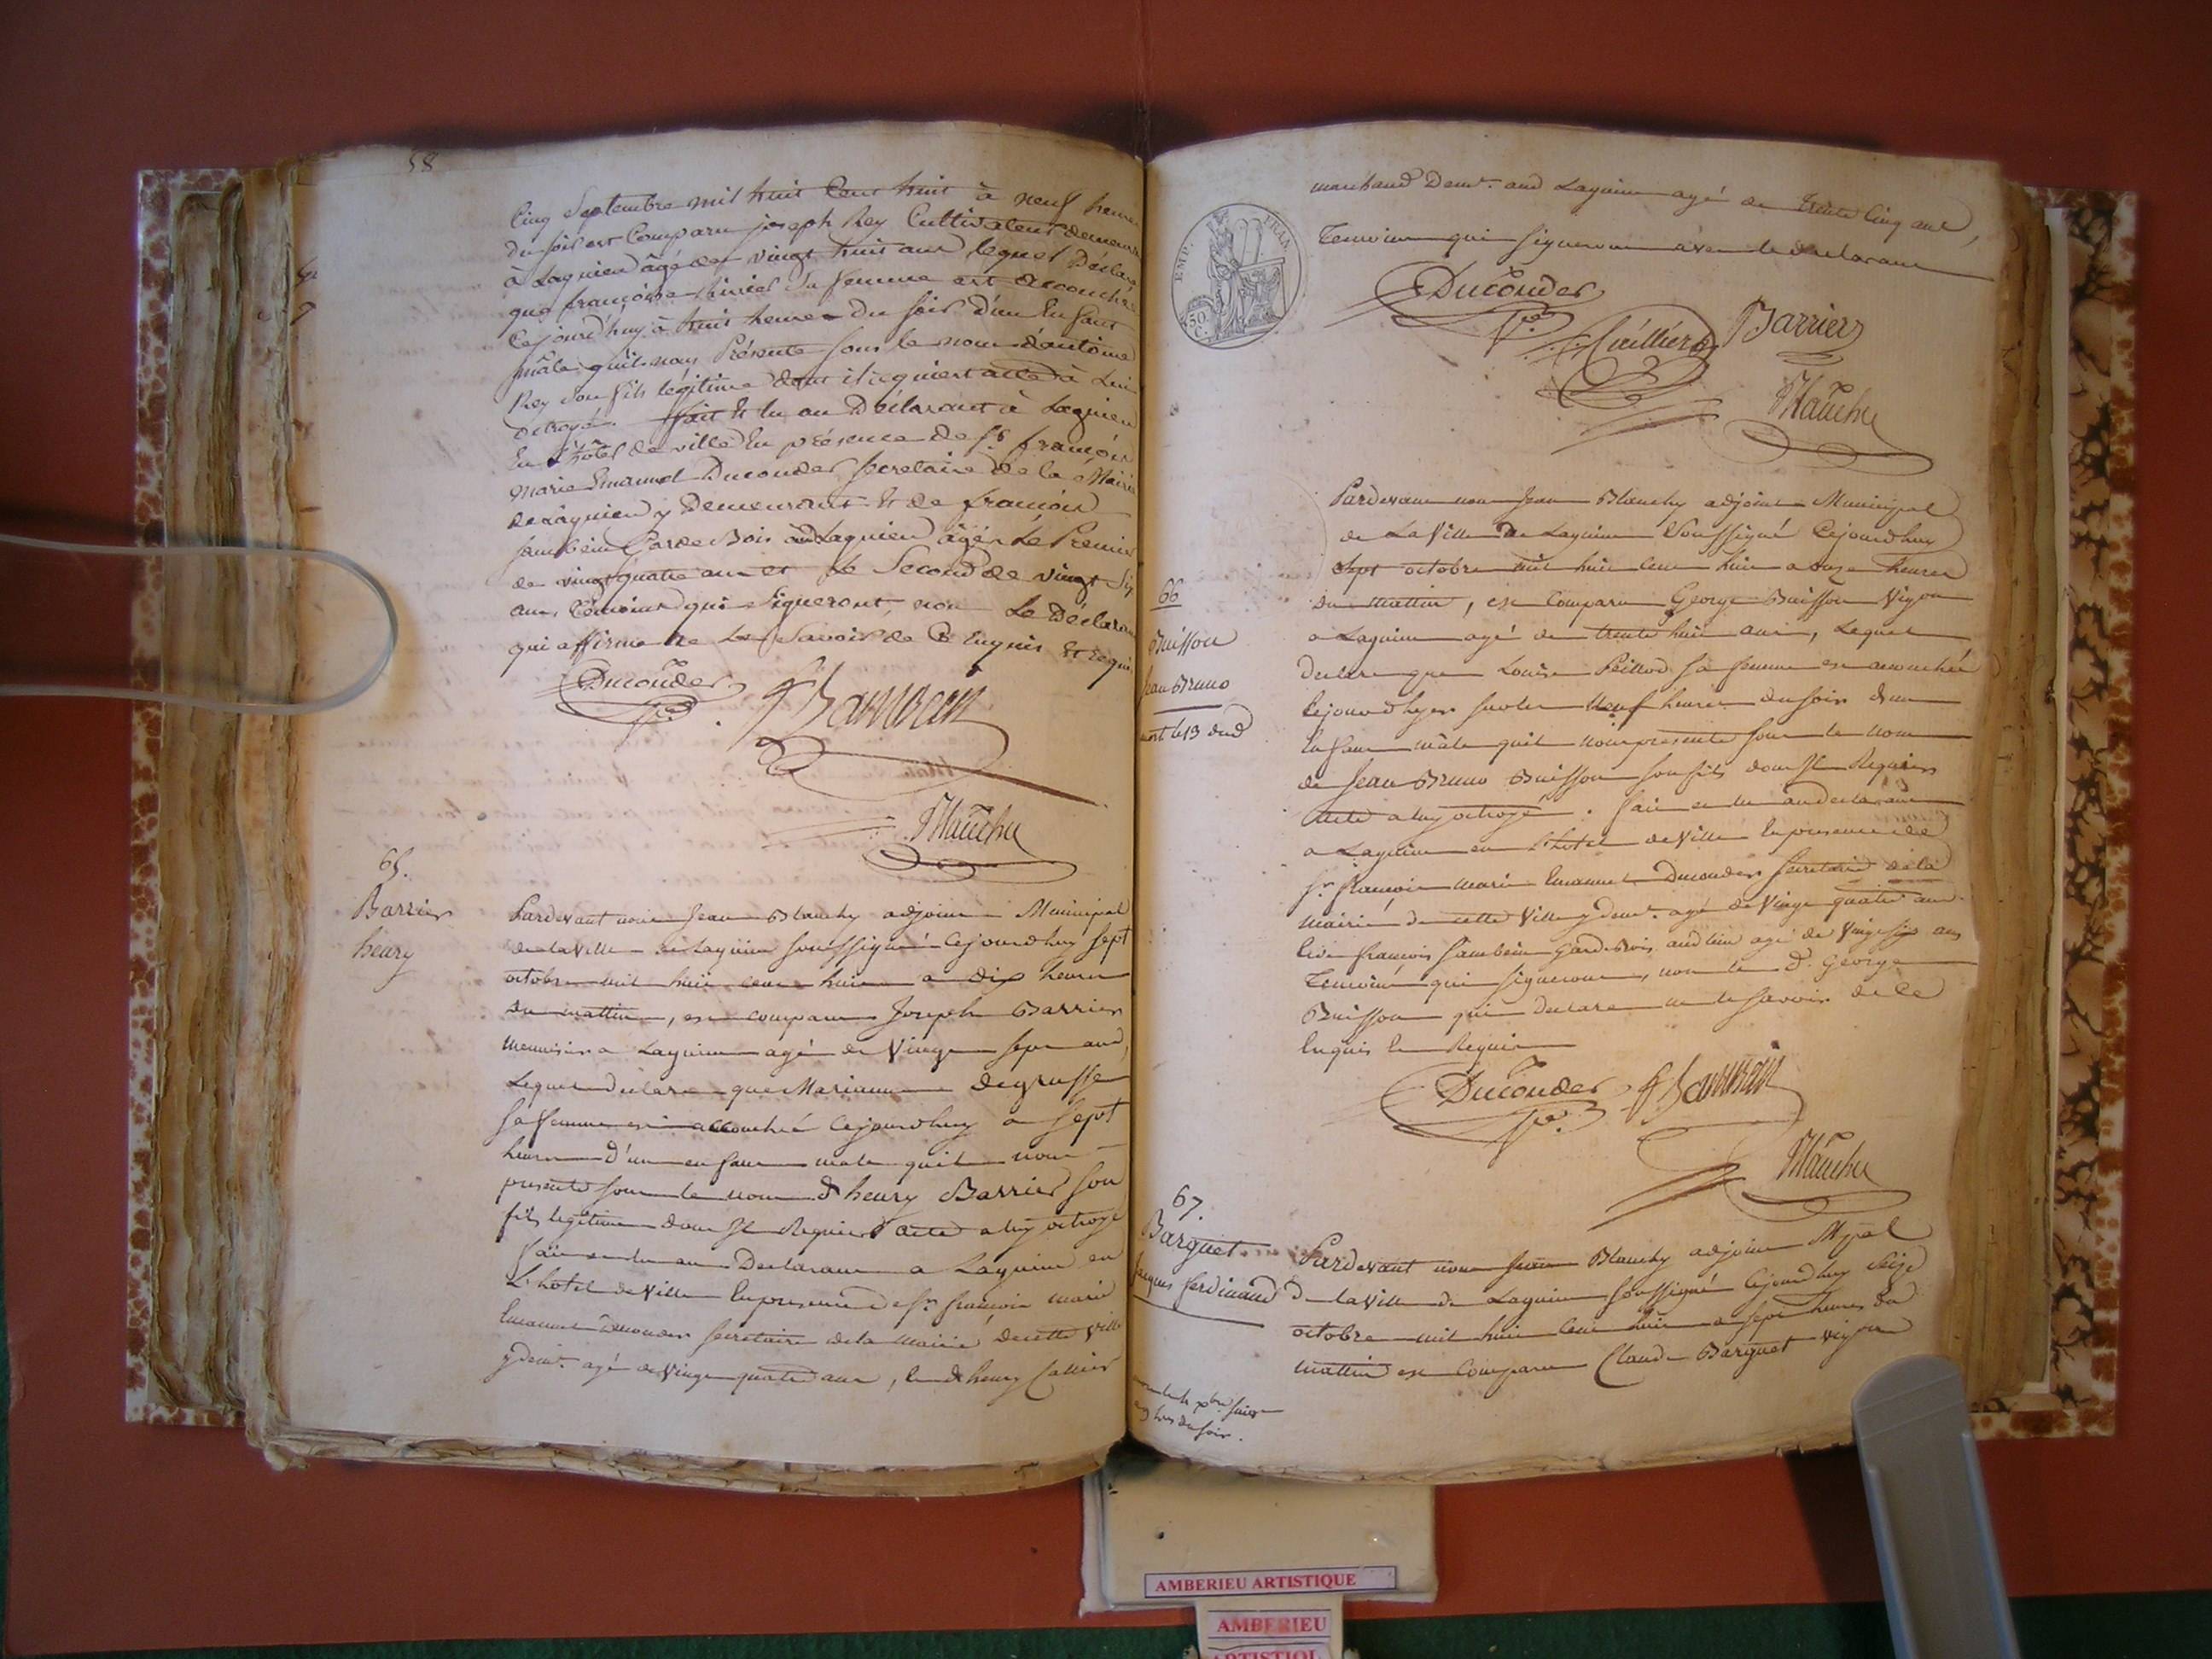 58
Cinq Septembre mil huit Cent huit à neuf heures
du soir est Comparu joseph Rey Cultivateur demeurant
à Lagnieu âgé de vingt huit ans lequel Déclare
que françoise sa femme est accouchée
Cejourd'huy à huit heures du soir d'un Enfant
mâle qu'il nous Présente sous le nom d'antoine
Rey son fils légitime dont il requiert acte à Lui
octroyé. fait et lu au Déclarant à Lagnieu
En l'hôtel de ville En présence de sr. françois
marie Emanuel Ducouder secretaire de la Mairie
de Lagnieu y Demeurant Et de françois
Jambein Garde Bois aud Lagnieu âgés Le Premier
de vingt quatre ans et le Second de vingt Six
ans, témoins qui Signeront, non Le Déclarant
qui affirme ne Le Savoir de ce Enquis Et requis
Ducouder
Blanchy
65.
Barrier
henry
Pardevant nous Jean Blanchy adjoint Municipal
de la Ville de Lagnieu soussigné Cejourdhuy sept
octobre mil huit cent huit a dix heures
du mattin, est comparu Joseph Barrier
menuisier a Lagnieu agé de Vingt sept ans,
Lequel declare que Marianne degrusse
sa femme est accouchée Cejourdhuy a sept
heures d'un enfant male quil nous
presente sous le nom d henry Barrier son
fils legitime dont Il Requiert acte a luy octroyé
fait et lu au Declarant a Lagnieu en
L'hotel de Ville En presence de sr. françois marie
Emanuel Ducouder secretaire de la mairie de cette Ville
y demt. agé de Vingt quatre ans, et de henry Cuillier
EMP. FRAN.
50 C.
marchand Demt. aud Lagnieu agé de trente Cinq ans,
Temoins qui signeront avec le declarant
Ducouder
Cuillier
Barrier
Blanchy
66
Buisson
Jean Bruno
mort le 13 dud
Pardevant nous Jean Blanchy adjoint Municipal
de La Ville de Lagnieu Soussigné Cejourdhuy
sept octobre mil huit cent huit a onze heures
du mattin, est Comparu George Buisson Vigon
a Lagnieu agé de trente huit ans, Lequel
declare que Louise Peillod sa femme est accouchée
le jour dhyer sur les neuf heures du soir d'un
Enfant mâle quil nous presente sous le nom
de Jean Bruno Buisson son fils dont Il Requiert
acte a luy octroyé. fait et lu au declarant
a Lagnieu en L'hotel de Ville En presence de
sr. françois marie Emanuel Ducouder secretaire de la
mairie de cette Ville y demt. agé de Vingt quatre ans
Et de françois Jambein garde Bois aud lieu agé de Vingt six ans
Temoins qui signeront, non le d. George
Buisson qui declare ne le savoir de Ce
Enquis et Requis
Ducouder
Blanchy
67.
Barquet
Jaques ferdinand
Pardevant nous Jean Blanchy adjoint Mpal
d la Ville de Lagnieu soussigné Cejourdhuy seize
octobre mil huit Cent huit a sept heures du
mattin est Comparu Claude Barquet Vigon
du soir.
AMBERIEU ARTISTIQUE
AMBERIEU
ARTISTIQU